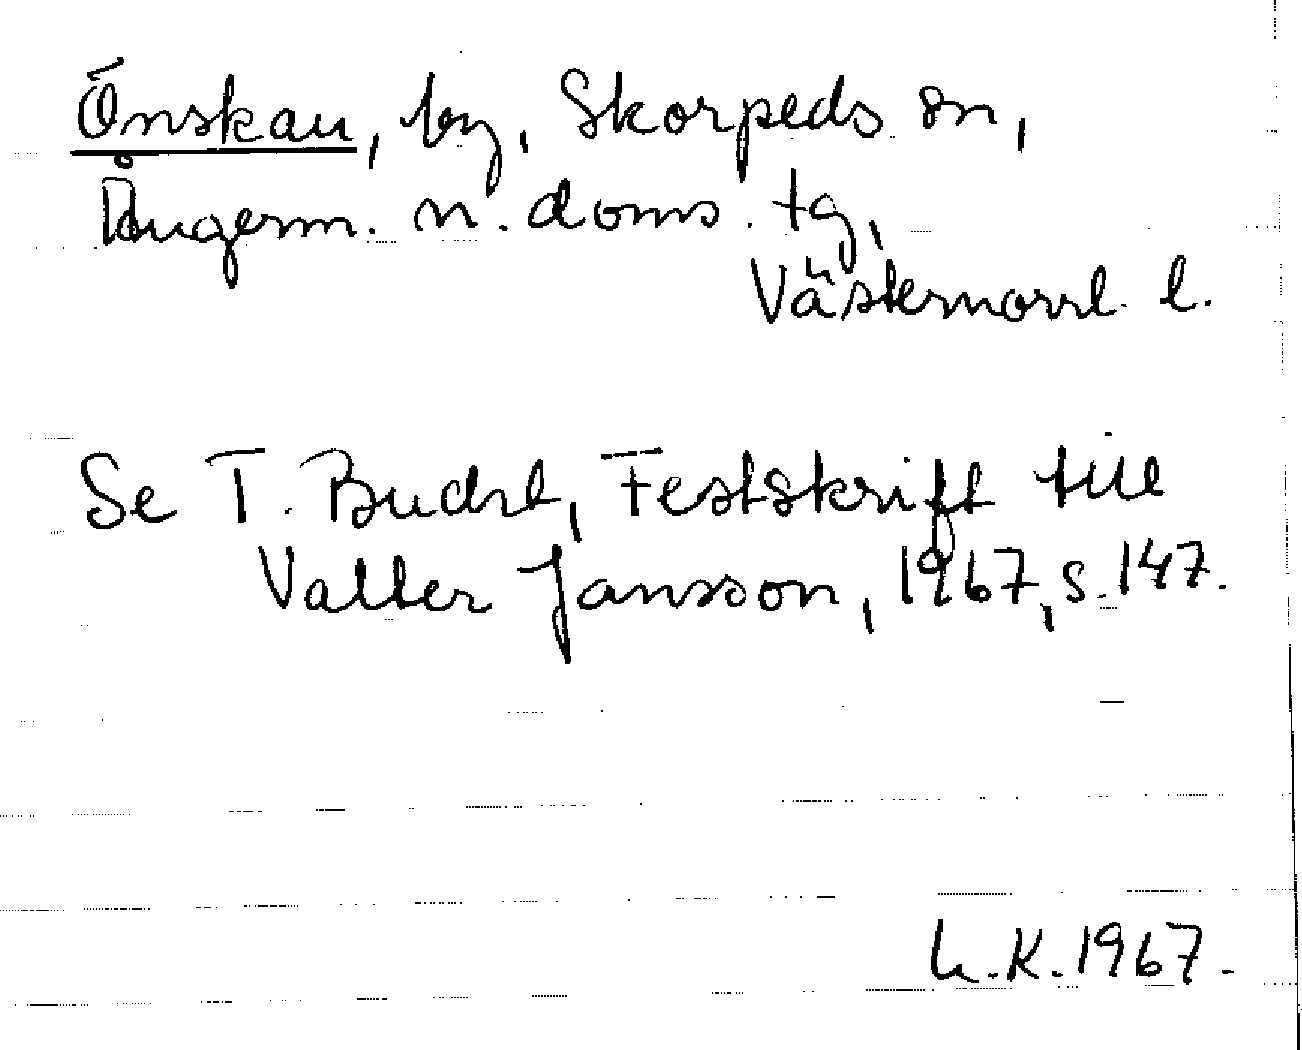 Önskan, by, Skorpeds sn,
Ångerm. n. doms. tg,
Västernorrl. l.
Se T. Bucht, Festskrift till
Valter Jansson, 1967, s. 147.
h.K. 1967.